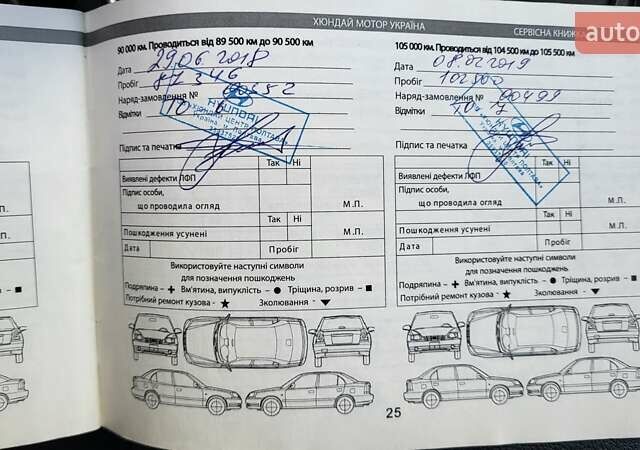 ХЮНДАЙ МОТОР УКРАЇНА
СЕРВІСНА КНИЖКА
auto
90 000 км. Проводиться від 89 500 км до 90 500 км
Дата 29.06.2018
Пробіг 87 346
Наряд-замовлення №
Відмітки
HYUNDAI
ХЮНДАЙ ЦЕНТР ПОЛТАВА
Підпис та печатка
Так Ні
Виявлені дефекти ЛФП
Підпис особи,
що проводила огляд М.П.
Так Ні
Пошкодження усунені М.П.
Дата Пробіг
Використовуйте наступні символи
для позначення пошкоджень
Подряпина – Вм'ятина, випуклість – Тріщина, розрив –
Потрібний ремонт кузова - Зколювання -
105 000 км. Проводиться від 104 500 км до 105 500 км
Дата 08.02.2019
Пробіг 102500
Наряд-замовлення № 00499
Відмітки
HYUNDAI
Підпис та печатка
Так Ні
Виявлені дефекти ЛФП
Підпис особи,
що проводила огляд М.П.
Так Ні
Пошкодження усунені М.П.
Дата Пробіг
Використовуйте наступні символи
для позначення пошкоджень
Подряпина – Вм'ятина, випуклість – Тріщина, розрив –
Потрібний ремонт кузова - Зколювання -
М.П.
М.П.
25